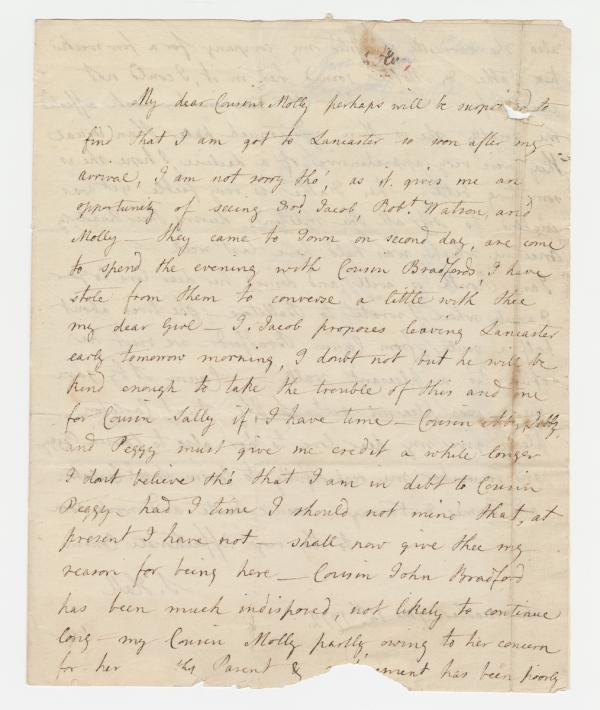 My dear Cousin Molly perhaps will be surprised to
find that I am got to Lancaster so soon after my
arrival, I am not sorry tho', as it gives me an
opportunity of seeing Jacob, Robt. Watson, and
Molly — they came to Town on second day, are come
to spend the evening with Cousin Bradfords, I have
stole from them to converse a little with thee
my dear Girl — I. Jacob proposes leaving Lancaster
early tomorrow morning, I doubt not but he will be
kind enough to take the trouble of this and one
for Cousin Sally if I have time — Cousin Debby,
and Peggy must give me credit a while longer
I dont believe tho' that I am in debt to Cousin
Peggy — had I time I should not mind that, at
present I have not — shall now give thee my
reason for being here — Cousin John Bradford
has been much indisposed, not likely to continue
long — my Cousin Molly partly owing to her concern
for her Parent & ement has been poorly